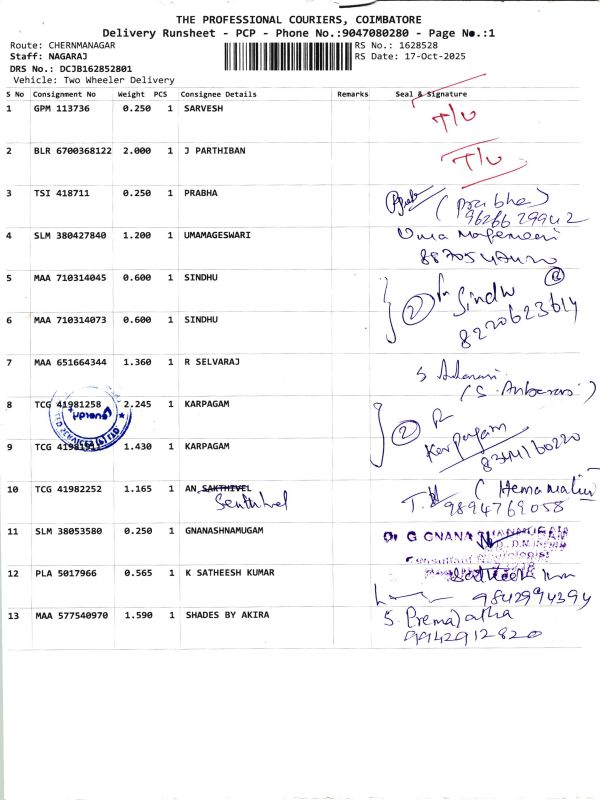 THE PROFESSIONAL COURIERS, COIMBATORE
Delivery Runsheet - PCP - Phone No.:9047080280 - Page No.:1
Route: CHERNMANAGAR
RS No.: 1628528
Staff: NAGARAJ
RS Date: 17-Oct-2025
DRS No.: DCJB162852801
Vehicle: Two Wheeler Delivery
S No Consignment No Weight PCS Consignee Details Remarks Seal & Signature
1 GPM 113736 0.250 1 SARVESH
2 BLR 6700368122 2.000 1 J PARTHIBAN
3 TSI 418711 0.250 1 PRABHA (Prabha)
96266 29942
4 SLM 380427840 1.200 1 UMAMAGESWARI
5 MAA 710314045 0.600 1 SINDHU 2 Sindhu
6 MAA 710314073 0.600 1 SINDHU 8220623614
7 MAA 651664344 1.360 1 R SELVARAJ
8 TCG 41981258 2.245 1 KARPAGAM 2
Karpagam
9 TCG 1.430 1 KARPAGAM
10 TCG 41982252 1.165 1 AN SAKTHIVEL
Senthivel
9894769058
11 SLM 38053580 0.250 1 GNANASHNAMUGAM Dr G GNANA
12 PLA 5017966 0.565 1 K SATHEESH KUMAR
9842994394
13 MAA 577540970 1.590 1 SHADES BY AKIRA S. Premalatha
9942912820